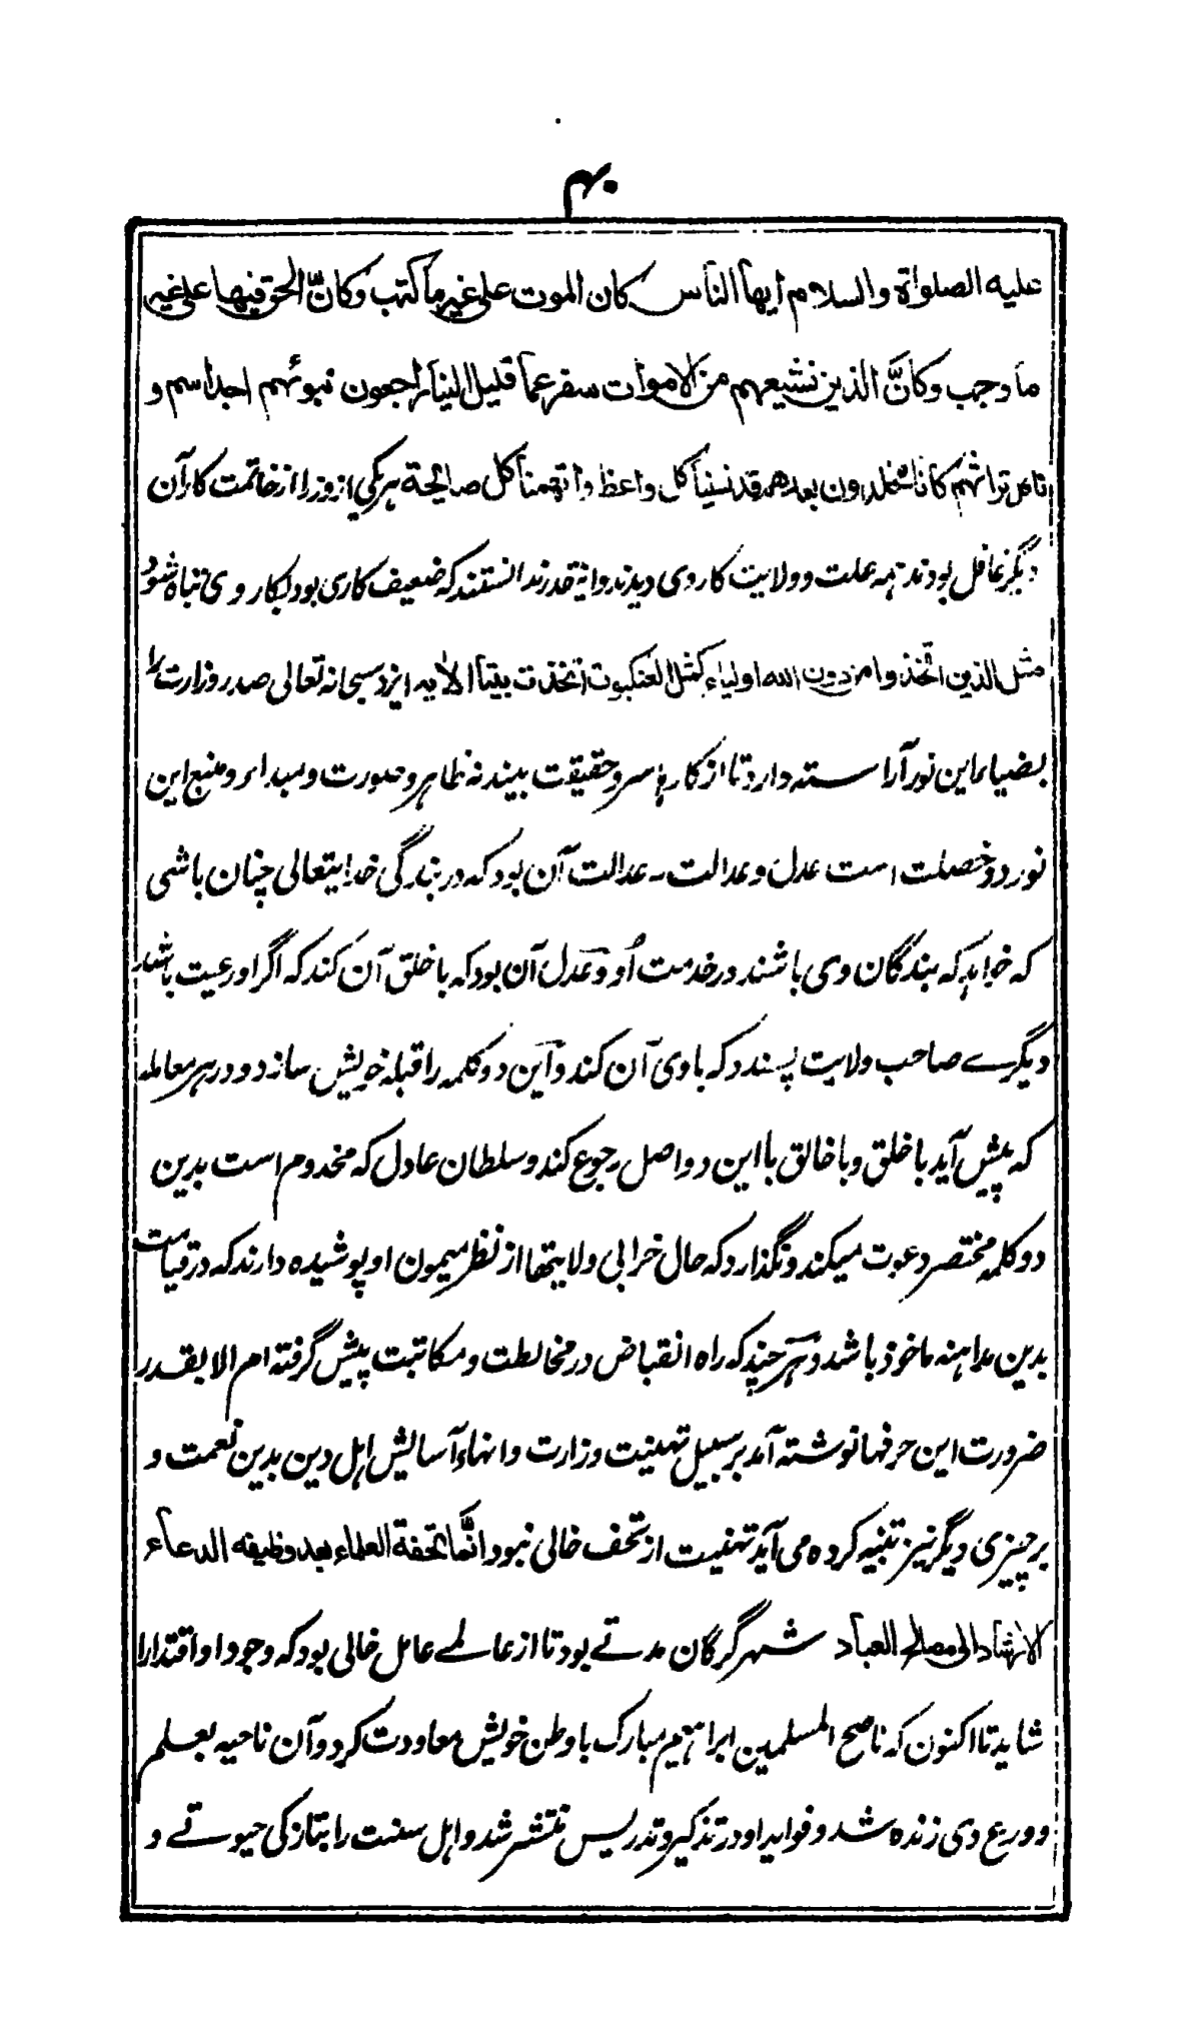 ۴۰
علیه الصلواة والسلام ایها الناس کان الموت علی غیرما کتب وکانّ الحق فیها علی غیر
ما وجب وکانَّ الذین نشیعهم من الاموات سفر عما قلیل الینا راجعون نبوئهم اجداسهم و
تاکل تراثهم کانا مخلدون بعدهم قد نسینا کل واعظ واتهمنا کل صالحة هر یکی ازوزرا از خاتمت کارآن
دیگر غافل بودند همه علت وولایت کار وی دیدند وانیقدر ندانستند که ضعیف کاری بود لیکار وی تباه شود
مثل الذین اتخذوا من دون الله اولیاء کمثل العنکبوت اتخذت بیتا الآیه ایزد سبحانه تعالی صدر وزارت را
بضیاء این نور آراسته دارد تا از کارها سر و حقیقت بیند نه ظاهر و صورت ومبداء ومنبع این
نور دو خصلت است عدل وعدالت ـ عدالت آن بود که در بندگی خدایتعالی چنان باشی
که خواهد که بندگان وی باشند در خدمت اُو وعدل آن بود که با خلق آن کند که اگر او رعیت باشد
دیگرے صاحب ولایت پسندد که باوی آن کند واین دو کلمه را قبله خویش سازد ودر هر معامله
که پیش آید با خلق وبا خالق با این دو اصل رجوع کند و سلطان عادل که مخدوم است بدین
دو کلمه مختصر دعوت میکند ونگذارد که حال خرابی ولایتها از نظر میمون او پوشیده دارند که در قیامت
بدین مداهنه ماخوذ باشد وهرچند که راه انقباض در مخالطت ومکاتبت پیش گرفته ام الا بقدر
ضرورت این حرفها نوشته آمد بر سبیل تهنیت وزارت وانهاء آسایش اهل دین بدین نعمت و
بر چیزی دیگر نیز تنبیه کرده می آید تهنیت از تحف خالی نبود انّما تحفة العلماء بعد وظیفه الدعاء
الارشاد الی مصالح العباد شهر گرگان مدتے بود تا از عالمے عامل خالی بود که وجود او اقتدارا
شاید تا اکنون که ناصح المسلمین ابراهیم مبارک با وطن خویش معاودت کرد وآن ناحیه بعلم
وورع وی زنده شد وفواید او در تذکیر وتدریس منتشر شد واهل سنت را بتازگی حیوتے و